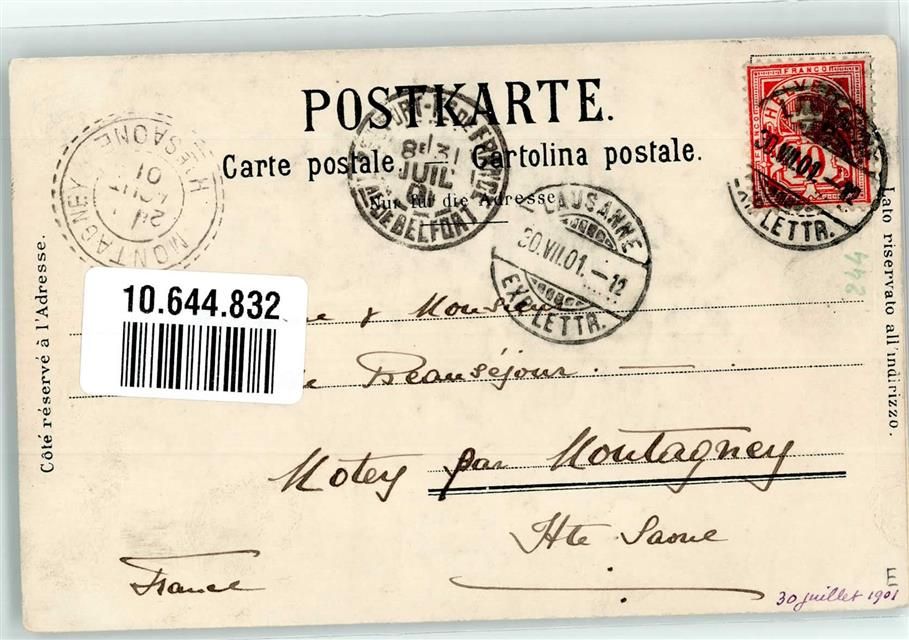 POSTKARTE.
Carte postale — Cartolina postale.
Nur für die Adresse
Côté réservé à l'Adresse.
Lato riservato all'indirizzo.
FRANCO
HELVETIA
10
LAUSANNE
30.VII.01.–12
EXP. LETTR.
LAUSANNE
30.VII.01.–12
EXP. LETTR.
8 31
JUIL
01
DE BELFORT
MONTAGNEY
01
Hte SAONE
244
10.644.832
& Monsieur
Beauséjour.
Motey par Montagney
Hte Saone
France
30 juillet 1901
E